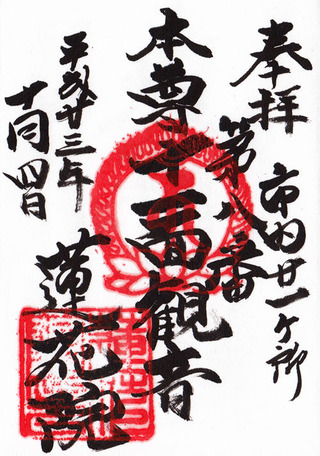 奉拝
市内廿一ヶ所
第八番
本尊十一面観音
平成廿三年
十月四日
蓮花院